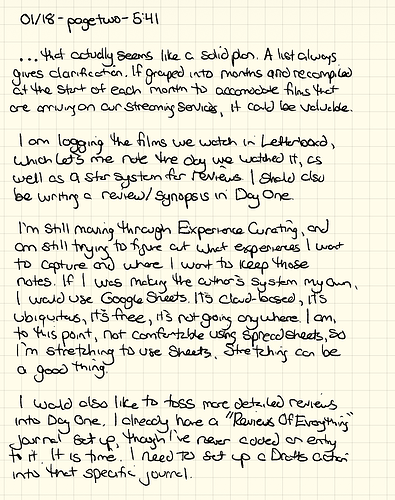 01/18 - page two - 5:41
...that actually seems like a solid plan. A list always
gives clarification. If grouped into months and recompiled
at the start of each month to accomodate films that
are arriving on our streaming services, it could be valuable.
I am logging the films we watch in Letterboxd,
which let's me note the day we watched it, as
well as a star system for reviews. I should also
be writing a review/synopsis in Day One.
I'm still moving through Experience Curating, and
am still trying to figure out what experiences I want
to capture and where I want to keep those
notes. If I was making the author's system my own,
I would use Google Sheets. It's cloud-based, it's
ubiquitous, it's free, it's not going anywhere. I am,
to this point, not comfortable using spreadsheets, so
I'm stretching to use Sheets. Stretching can be
a good thing.
I would also like to toss more detailed reviews
into Day One. I already have a "Reviews Of Everything"
journal set up, though I've never added an entry
to it. It is time. I need to set up a Drafts action
into that specific journal.